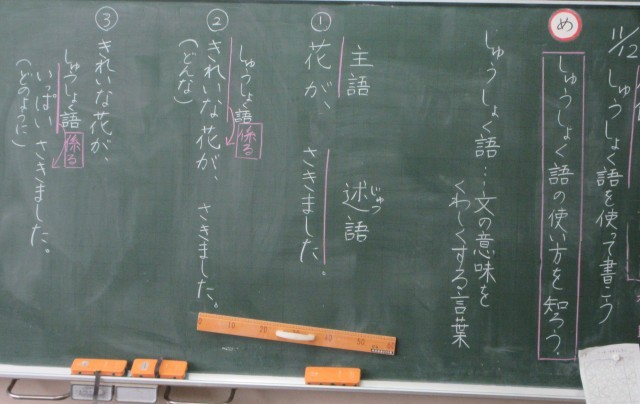 11/12 しゅうしょく語を使って書こう
め
しゅうしょく語の使い方を知ろう。
しゅうしょく語…文の意味を
くわしくする言葉
主語 述語
じゅつ
① 花が、さきました。
しゅうしょく語 係る
② きれいな花が、さきました。
(どんな)
③ きれいな花が、
しゅうしょく語 係る
いっぱいさきました。
(どのように)
10 20 30 40 50